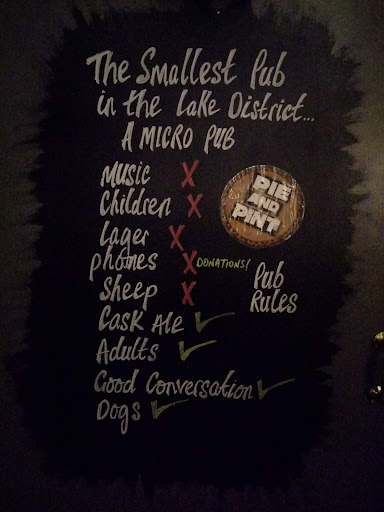 The Smallest Pub
in the Lake District...
A MICRO PUB
Music X
Children X
Lager X
phones X DONATIONS!
Sheep X
Cask Ale ✓
Adults ✓
Good Conversation ✓
Dogs ✓
PIE
AND
PINT
Pub
Rules